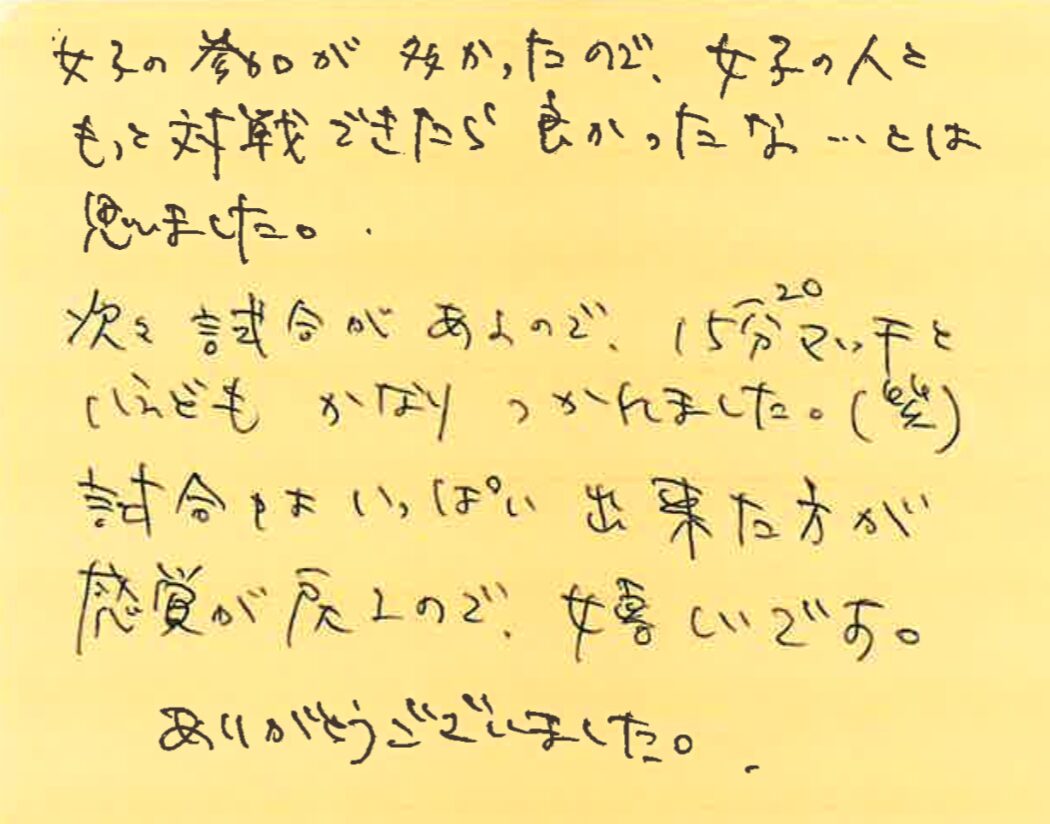 女子の参加が多かったので、女子の人と
もっと対戦できたら良かったな…とは
思いました。
次々試合があるので、15分マッチと
20
いえども かなりつかれました。(笑)
試合はいっぱい出来た方が
感覚が戻るので、嬉しいです。
ありがとうございました。